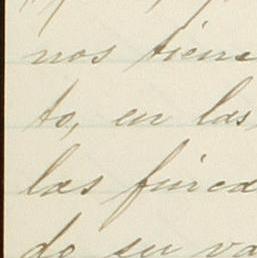 nos tiene
to, en las
las finca
do su va